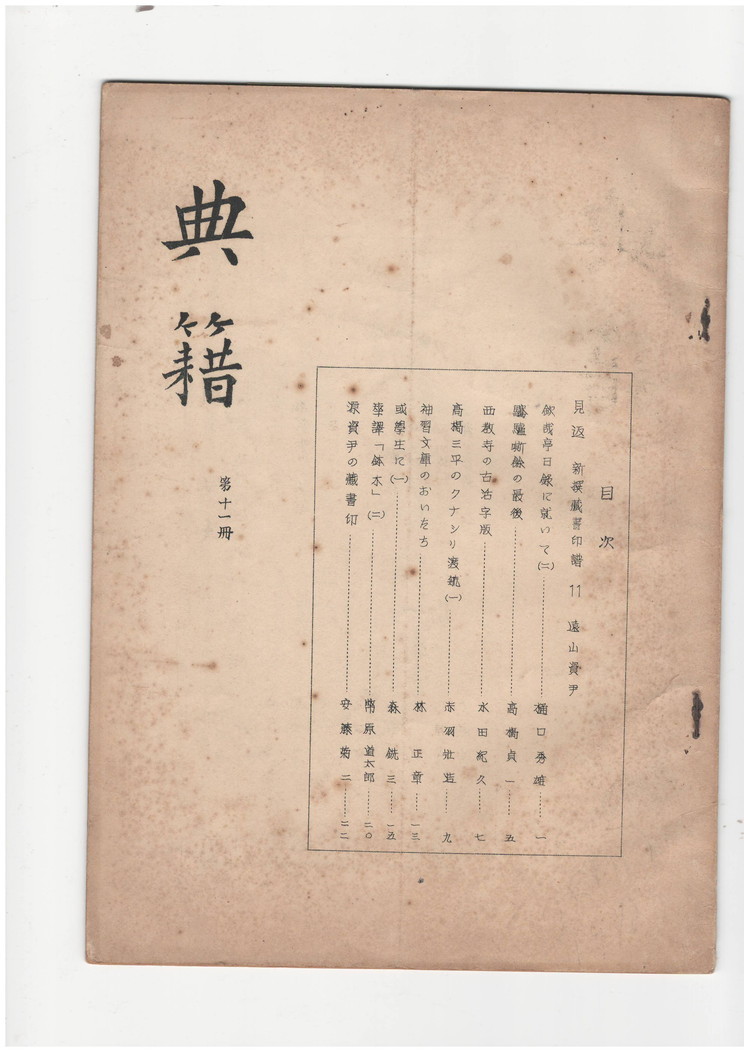 典籍
第十一冊
目次
見返 新撰蔵書印譜 11 遠山資尹
欽哉亭日録に就いて(二)……樋口秀雄……一
の最後……高橋貞一……五
西教寺の古活字版……水田紀久……七
高橋三平のクナシリ渡航(一)……赤羽壮造……九
神習文庫のおいたち……林 正章……一三
或學生に(一)……森 銑三……一五
「鉢木」(二)……幣原道太郎……二〇
源資尹の蔵書印……安藤菊二……二二